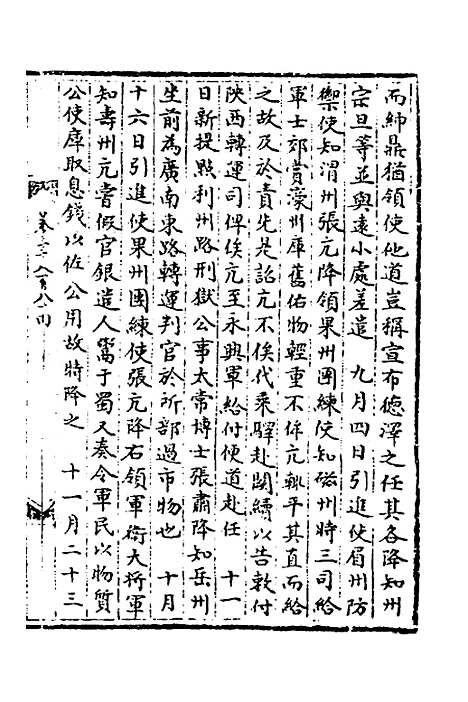 而紳鼎猶領使他道豈稱宣布德澤之任其各降知州
宗旦等並與遠小處差遣　九月四日引進使眉州防
禦使知渭州張亢降領果州團練使知磁州時三司給
軍士郊賞濠州庫舊佑物輕重不係亢輒平其直而給
之故及於責先是詔亢不俟代乘驛赴闕續以告敕付
陝西轉運司俾俟亢至永興軍給付便道赴任　十一
日新提㸃利州路刑獄公事太常博士張肅降知岳州
坐前為廣南東路轉運判官於所部過市物也　十月
十六日引進使果州團練使張亢降右領軍衛大將軍
知壽州亢嘗假官銀遣人鬻于蜀又奏令軍民以物質
公使庫取息錢以佐公用故特降之　十一月二十三